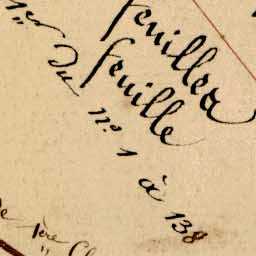 feuilles
feuille
1er du no. 1 à 138
de 1ère Cl